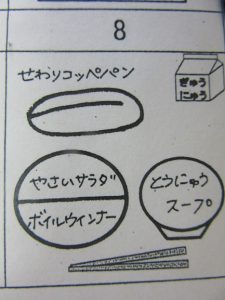 8
せわりコッペパン
ぎゅう
にゅう
やさいサラダ
ボイルウインナー
とうにゅう
スープ